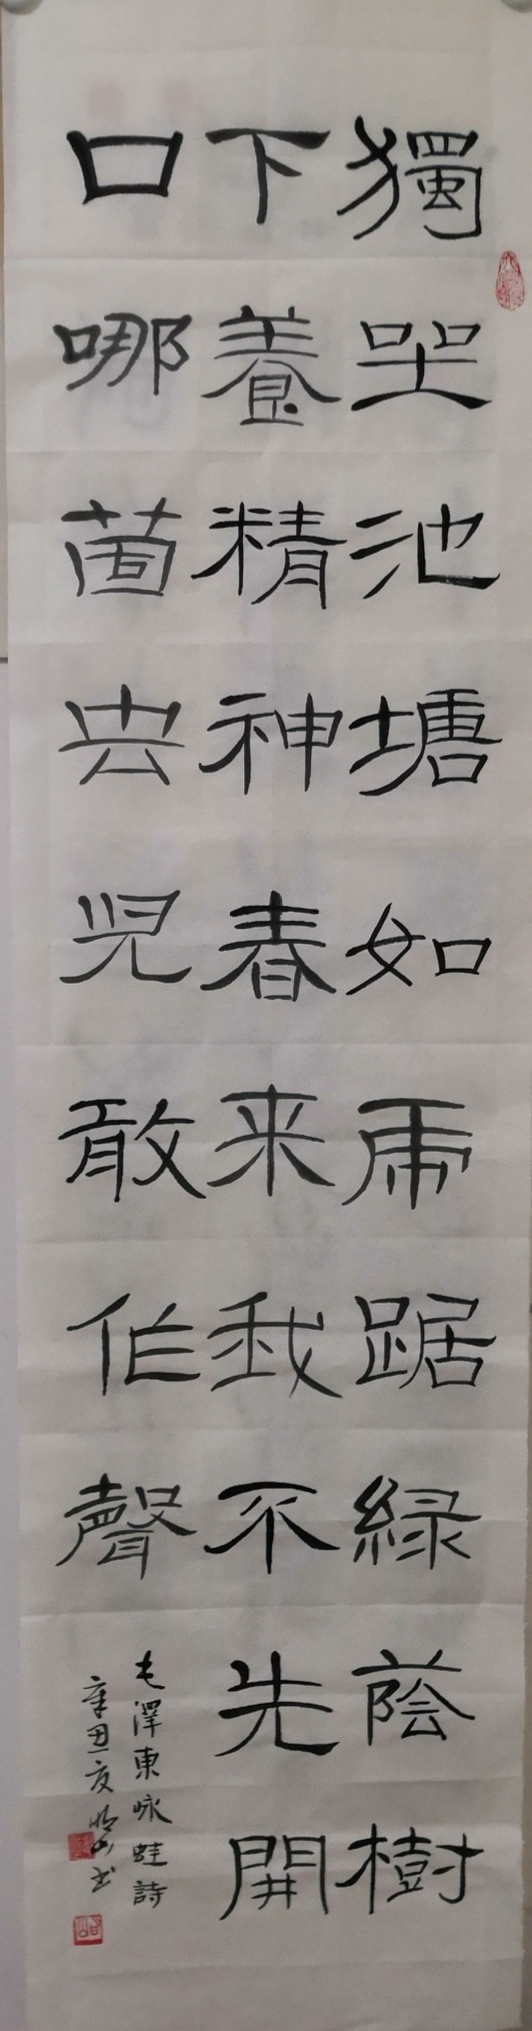 獨坐池塘如虎踞綠蔭樹
下養精神春来我不先開
口哪茴虫児敢作聲
毛澤東咏蛙詩
辛丑夏